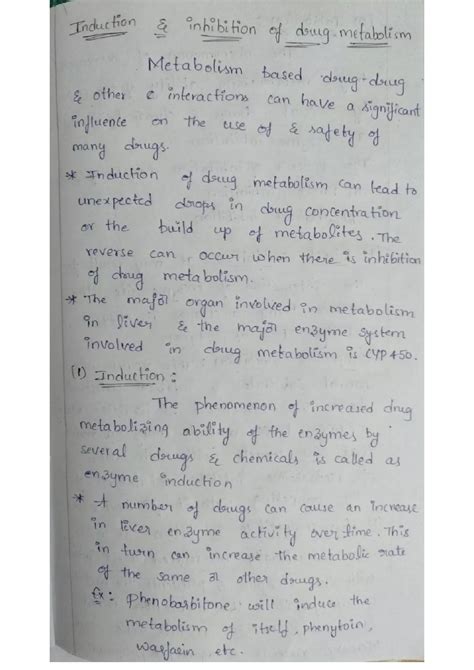 Induction & inhibition of drug metabolism
Metabolism based drug-drug
& other c interactions can have a significant
influence on the use of & safety of
many drugs.
* Induction of drug metabolism can lead to
unexpected drops in drug concentration
or the build up of metabolites. The
reverse can occur when there is inhibition
of drug metabolism.
* The major organ involved in metabolism
in liver & the major enzyme system
involved in drug metabolism is CYP450.
(1) Induction :
The phenomenon of increased drug
metabolizing ability of the enzymes by
several drugs & chemicals is called as
enzyme induction
* A number of drugs can cause an increase
in liver enzyme activity over time. This
in turn can increase the metabolic rate
of the same or other drugs.
Ex : Phenobarbitone will induce the
metabolism of itself, phenytoin,
warfarin, etc.